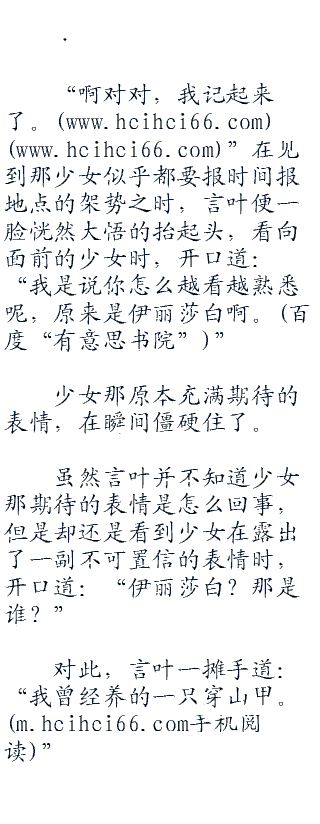 “啊对对，我记起来
了。(www.hcihci66.com)
(www.hcihci66.com)”在见
到那少女似乎都要报时间报
地点的架势之时，言叶便一
脸恍然大悟的抬起头，看向
面前的少女时，开口道：
“我是说你怎么越看越熟悉
呢，原来是伊丽莎白啊。(百
度“有意思书院”)”
少女那原本充满期待的
表情，在瞬间僵硬住了。
虽然言叶并不知道少女
那期待的表情是怎么回事，
但是却还是看到少女在露出
了一副不可置信的表情时，
开口道：“伊丽莎白？那是
谁？”
对此，言叶一摊手道：
“我曾经养的一只穿山甲。
(m.hcihci66.com手机阅
读)”